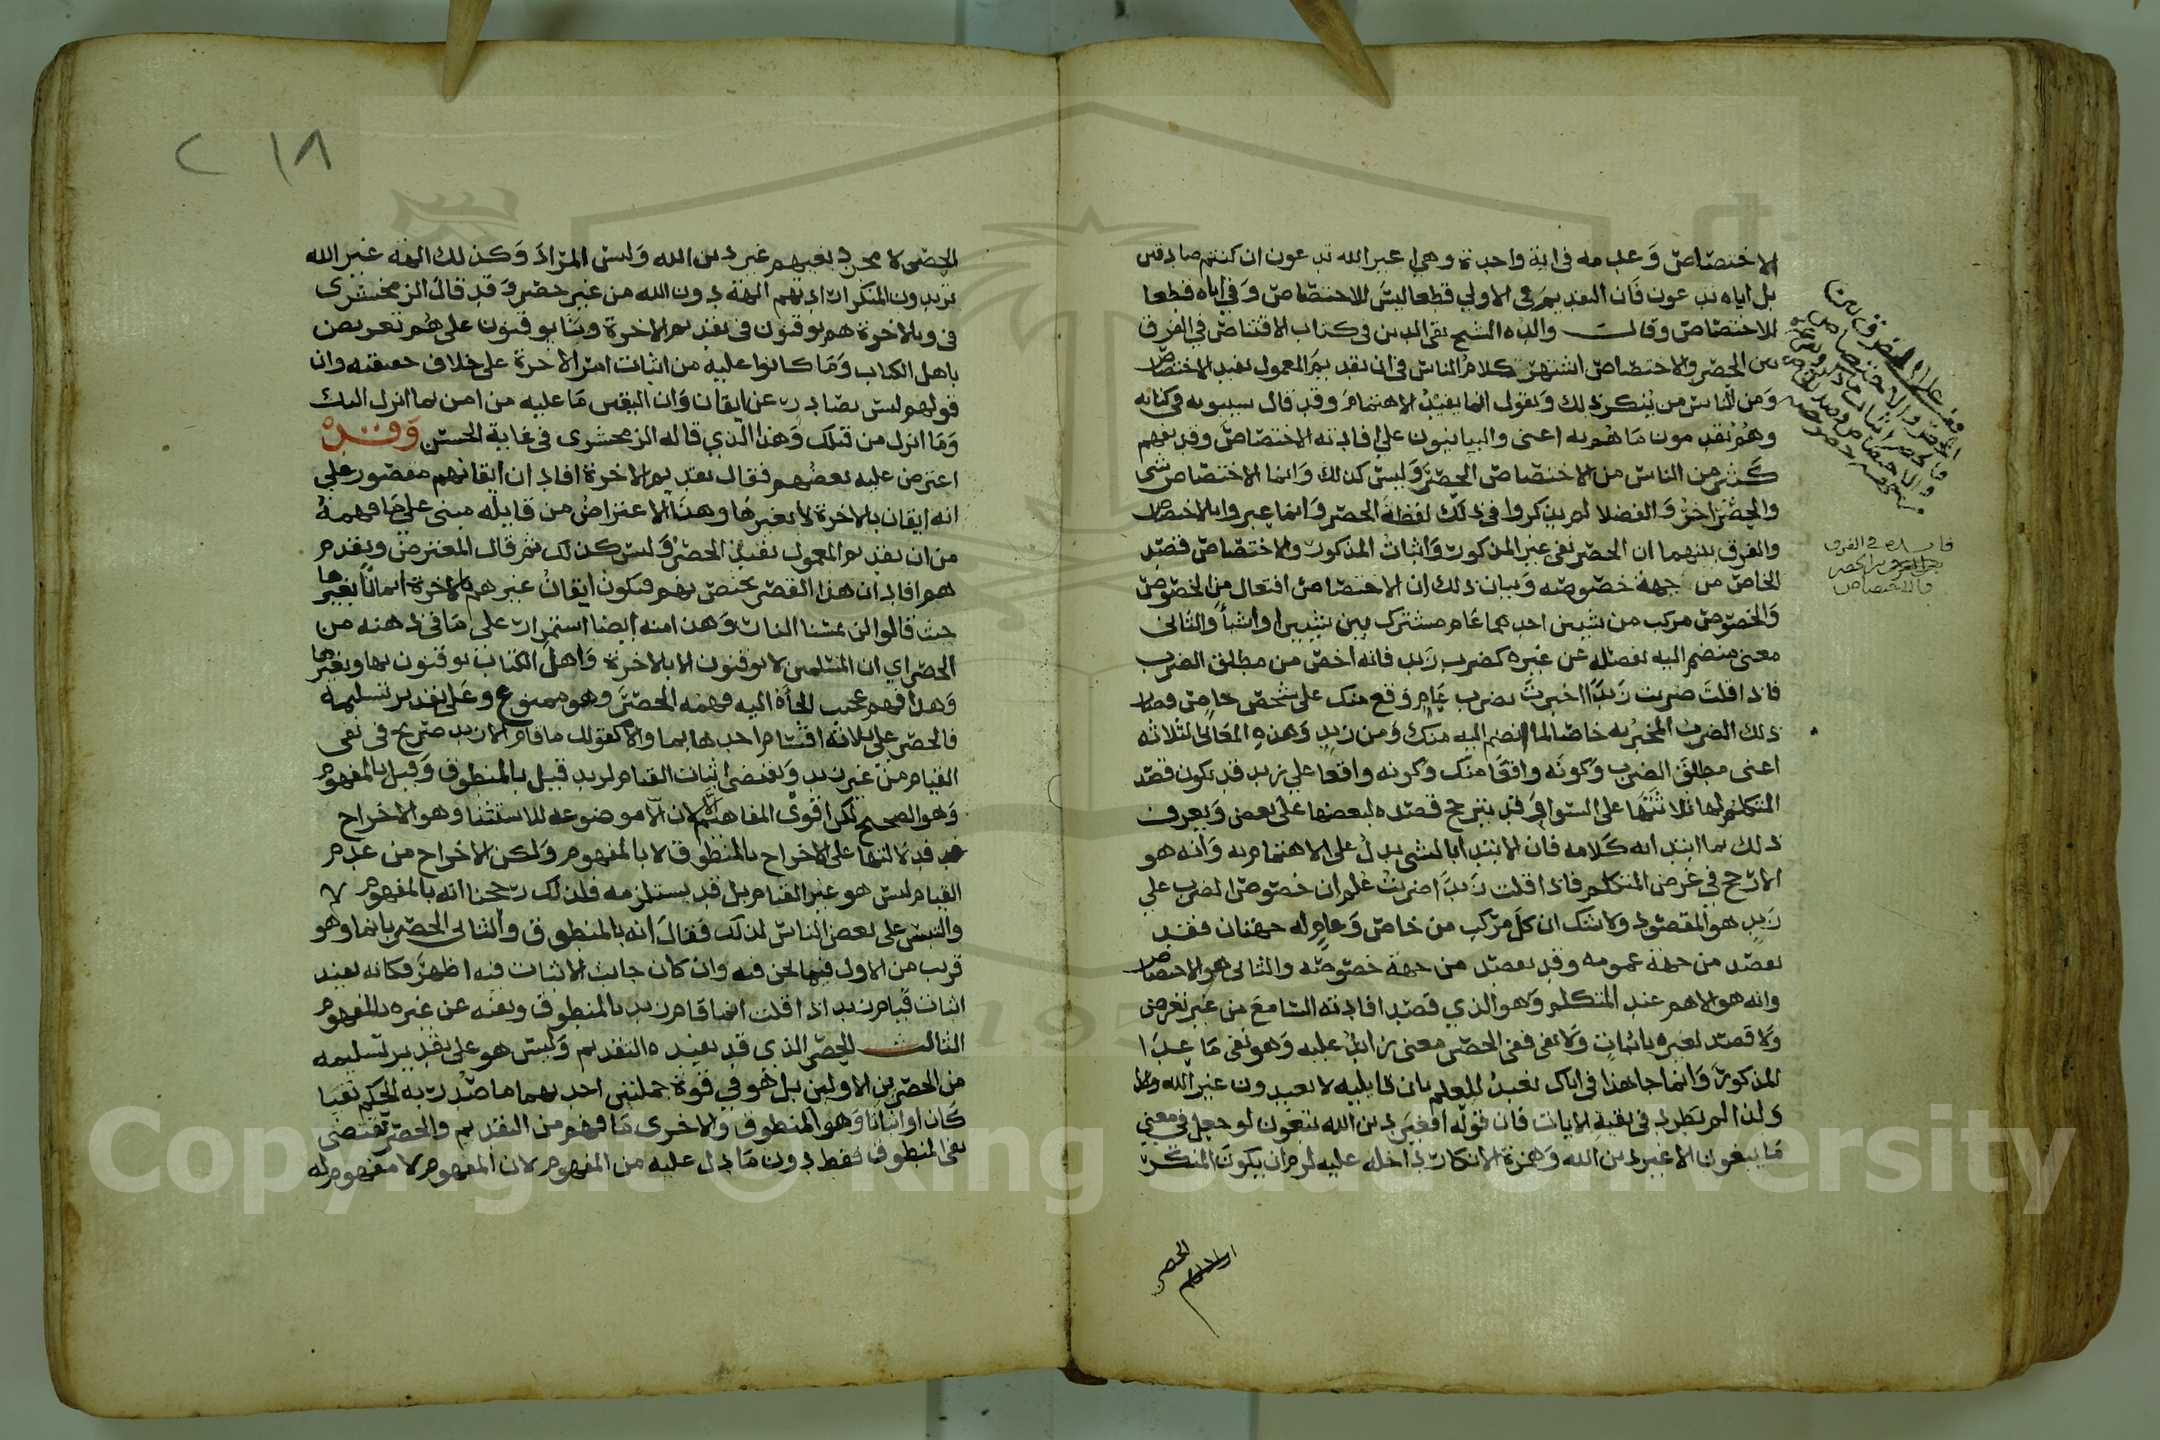 الاختصاص وعدمه في اية واحدة وهي اغير الله تدعون ان كنتم صادقين
بل اياه تدعون فان التقديم في الاولي قطعا ليس للاختصاص وفي اياه قطعا
للاختصاص وقال والده الشيخ تقي الدين في كتاب الاقتناص في الفرق
بين الحصر والاختصاص اشتهر كلام الناس في ان تقديم المعمول يفيد الاختصاص
ومن الناس من ينكر ذلك ويقول انما يفيد الاهتمام وقد قال سيبويه في كتابه
وهم يقدمون ما هم به اعنى والبيانيون علي افادته الاختصاص وقد يفهم
كثير من الناس من الاختصاص الحصر وليس كذلك وانما الاختصاص شي
والحصر اخر والفضلا لم يذكروا في ذلك لفظة الحصر وانما عبروا بالاختصاص
والفرق بينهما ان الحصر نفي غير المذكور واثبات المذكور والاختصاص قصد
الخاص من جهة خصوصه وبيان ذلك ان الاختصاص افتعال من الخصوص
والخصوص مركب من شيين احدهما عام مشترك بين شيين او اشيا والثاني
معنى منضم اليه يفصله عن غيره كضرب زيد فانه اخص من مطلق الضرب
فاذا قلت ضربت زيدا اخبرت بضرب عام وقع منك على شخص خاص فصار
ذلك الضرب المخبر به خاصا لما انضم اليه منك ومن زيد وهذه المعاني الثلاثة
اعنى مطلق الضرب وكونه واقعا منك وكونه واقعا علي زيد قد يكون قصد
المتكلم لها ثلاثتها على السوا وقد يترجح قصده لبعضها على بعض ويعرف
ذلك بما ابتدا به كلامه فان الابتدا بالشي يدل على الاهتمام به وانه هو
الارجح في غرض المتكلم فاذا قلت زيدا ضربت علم ان خصوص الضرب علي
زيد هو المقصود ولا شك ان كل مركب من خاص وعام له جهتان فقد
يقصد من جهة عمومه وقد يقصد من جهة خصوصه والثاني هو الاختصاص
وانه هو الاهم عند المتكلم وهو الذي قصد افادته السامع من غير تعرض
ولا قصد لغيره باثبات ولا نفي ففي الحصر معنى زايد عليه وهو نفي ما عدا
المذكور وانما جا هذا في اياك نعبد للعلم بان قايليه لا يعبدون غير الله
ولذا لم يطرد في بقية الايات فان قوله افغير دين الله تبغون لو جعل في معنى
ما يبغون الا غير دين الله وهمزة الانكار داخله عليه لزم ان يكون المنكر
قال في الفرق
بين الحصر
والاختصاص
الحصر
٢١٨
الحصر لا مجرد بغيهم غير دين الله وليس المراد وكذلك الهة غير الله
تريدون المنكر ارادتهم الهة دون الله من غير حصر وقد قال الزمخشري
في وبالاخرة هم يوقنون في تقديم الاخرة وبنا يوقنون على هم تعريض
باهل الكتاب وما كانوا عليه من اثبات امر الاخرة على خلاف حقيقته وان
قولهم ليس بصادر عن ايقان وان اليقين ما عليه من امن بما انزل اليك
وما انزل من قبلك وهذا الذي قاله الزمخشري في غاية الحسن وقد
اعترض عليه بعضهم فقال تقديم الاخرة افاد ان ايقانهم مقصور علي
انه ايقان بالاخرة لا بغيرها وهذا الاعتراض من قايله مبني علي ما فهمه
من ان تقديم المعمول يفيد الحصر وليس كذلك ثم قال المعترض وتقديم
هم افاد ان هذا القصر يختص بهم فيكون ايقان غيرهم بالاخرة ايمانا بغيرها
حيث قالوا لن تمسنا النار وهذا منه ايضا استمرار على ما في ذهنه من
الحصر اي ان المسلمين لا يوقنون الا بالاخرة واهل الكتاب يوقنون بها وبغيرها
وهذا فهم عجيب الجأه اليه فهمه الحصر وهو ممنوع وعلى تقدير تسليمه
فالحصر على ثلاثة اقسام احدها بما والا كقولك ما قام الا زيد صريح في نفي
القيام من غير زيد ويقتضي اثبات القيام لزيد قيل بالمنطوق وقيل بالمفهوم
وهو الصحيح لكنه اقوى المفاهيم لان الا موضوعة للاستثنا وهو الاخراج
فدلالتها على الاخراج بالمنطوق لا بالمفهوم ولكن الاخراج من عدم
القيام ليس هو غير القيام بل قد يستلزمه فلذلك رجحنا انه بالمفهوم
والتبس على بعض الناس لذلك فقال انه بالمنطوق والثاني الحصر بانما وهو
قريب من الاول فيما نحن فيه وان كان جانب الاثبات فيه اظهر فكانه يفيد
اثبات قيام زيد اذا قلت انما قام زيد بالمنطوق ونفيه عن غيره بالمفهوم
الثالث الحصر الذي قد يفيده التقديم وليس هو على تقدير تسليمه
مثل الحصرين الاولين بل هو في قوة جملتين احديهما ما صدر به الحكم نفيا
كان او اثباتا وهو المنطوق والاخرى ما فهم من التقديم والحصر يقتضي
نفي المنطوق فقط دون ما دل عليه من المفهوم لان المفهوم لا مفهوم له
Copyright © King Saud University